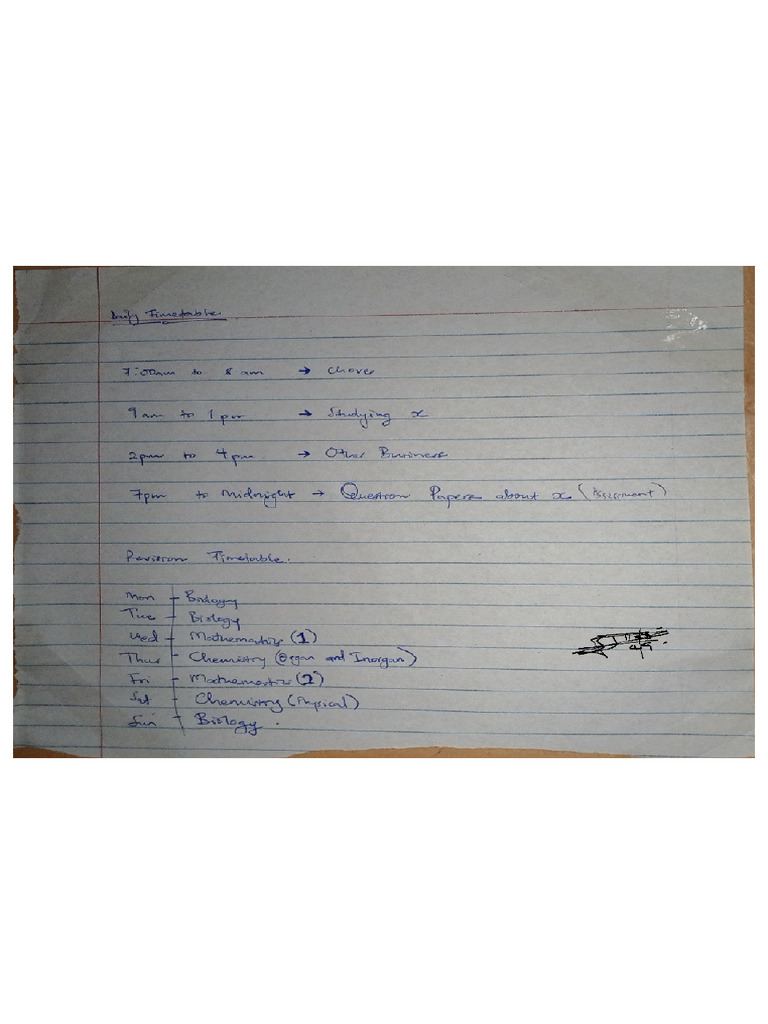 Daily Timetable
7:00am to 8 am → Chores
9 am to 1 pm → Studying x
2pm to 4 pm → Other Business
7pm to Midnight → Question Papers about x (Assessment)
Revision Timetable.
Mon - Biology
Tue - Biology
Wed - Mathematics (1)
Thur - Chemistry (Organ and Inorgan)
Fri - Mathematics (2)
Sat - Chemistry (Physical)
Sun - Biology.